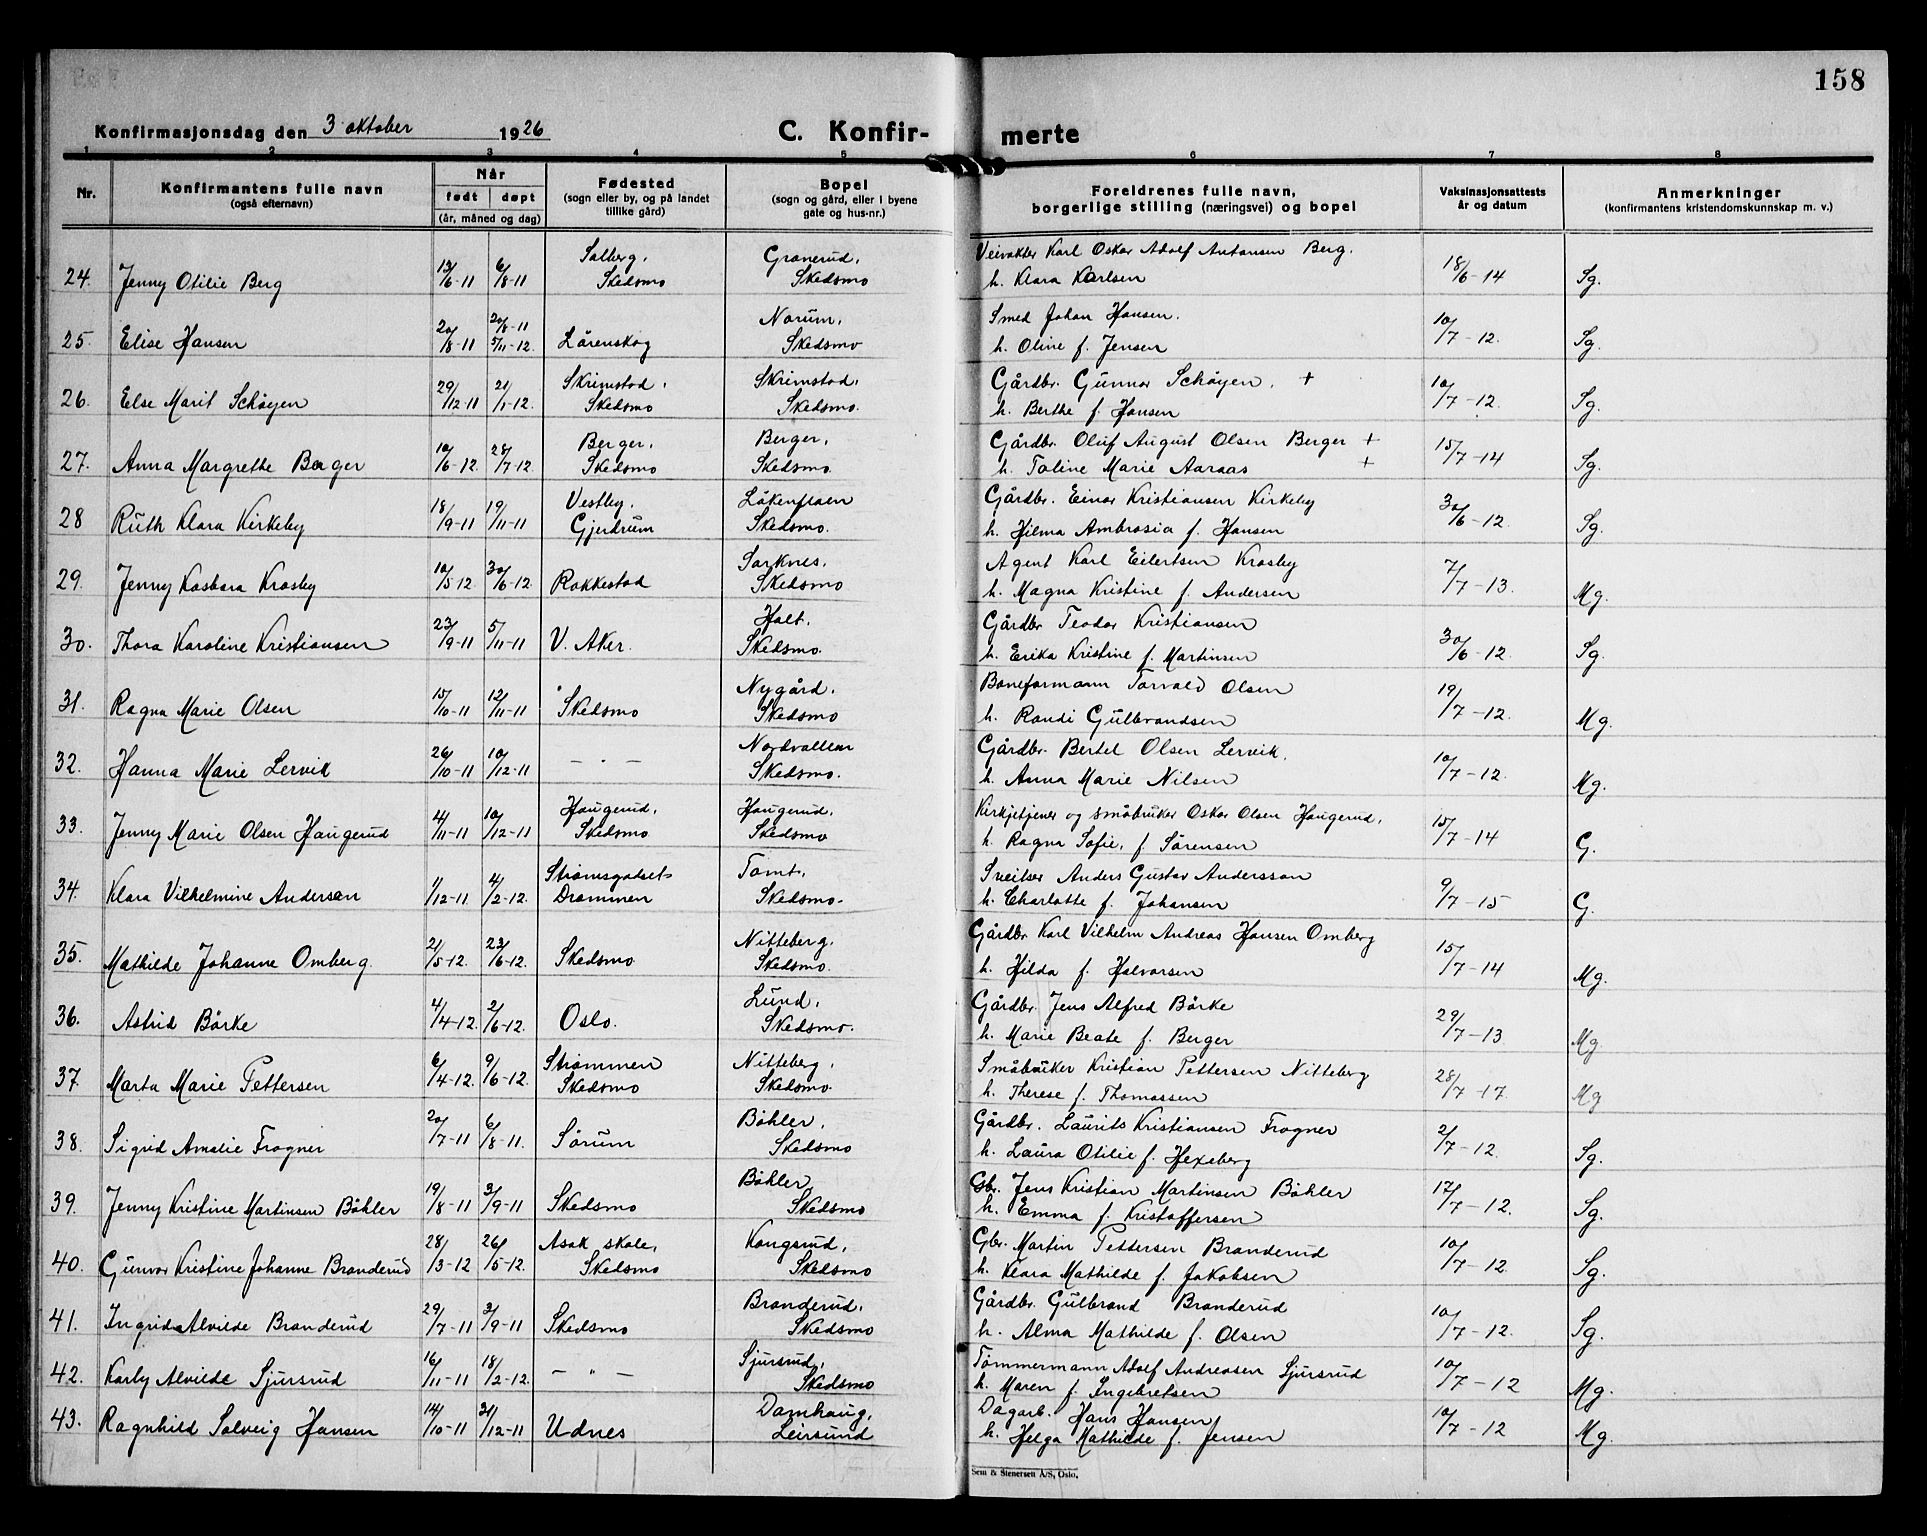 158
Konfirmasjonsdag den 3 oktober 1926 C. Konfir- merte
1 2 3 4 5 6 7 8
Nr. Konfirmantens fulle navn (også efternavn) Når født døpt (år, måned og dag) Fødested (sogn eller by, og på landet tillike gård) Bopel (sogn og gård, eller i byene gate og hus-nr.) Foreldrenes fulle navn, borgerlige stilling (næringsvei) og bopel Vaksinasjonsattests år og datum Anmerkninger (konfirmantens kristendomskunnskap m. v.)
24. Jenny Otilie Berg 13/6-11 6/8-11 Solberg, Skedsmo Granerud, Skedsmo Veivokter Karl Oskar Adolf Antonsen Berg. h. Klara Karlsen 18/6-14 Sg.
25. Elise Hansen 20/8-11 20/8-11 5/11-12. Lørenskog Norum, Skedsmo Smed Johan Hansen. h. Oline f. Jensen 10/7-12. Sg.
26. Else Marit Schøyen 29/12-11 21/1-12. Skrimstad, Skedsmo Skrimstad, Skedsmo. Gårdbr. Gunnar Schøyen. + h. Berthe f. Hansen 10/7-12. Sg.
27. Anna Margrethe Berger 10/6-12. 28/7-12. Berger, Skedsmo Berger, Skedsmo. Gårdbr. Oluf August Olsen Berger + h. Toline Marie Aaraas + 15/7-14 Sg.
28 Ruth Klara Kirkeby 18/9-11 19/11-11 Vestby, Gjerdrum Løkenflaen Skedsmo. Gårdbr. Einar Kristiansen Kirkeby h. Hilma Ambrosia f. Hansen 30/6-12. Sg.
29. Jenny Kasbara Krosby 10/5-12 30/6-12. Rakkestad Sorknes, Skedsmo Agent Karl Eilertsen Krosby h. Magna Kristine f. Andersen 7/7-13. Mg.
30. Thora Karoline Kristiansen 23/9-11 5/11-11 V. Aker. Holt, Skedsmo. Gårdbr Teodor Kristiansen h. Erika Kristine f. Martinsen 30/6-12. Sg.
31. Ragna Marie Olsen 15/10-11 12/11-11 Skedsmo Nygård, Skedsmo Baneformann Torvald Olsen h. Randi Gulbrandsen 19/7-12. Mg.
32. Hanna Marie Lervik 26/10-11 10/12-11 — " — Nordvollen Skedsmo. Gårdbr. Bertel Olsen Lervik, h. Anna Marie Nilsen 10/7-12. Mg.
33. Jenny Marie Olsen Haugerud 4/11-11 10/12-11 Haugerud, Skedsmo Haugerud, Skedsmo Kirkjetjener og småbruker Oskar Olsen Haugerud, h. Ragna Sofie, f Sørensen 15/7-14 G.
34. Klara Vilhelmine Andersen 1/12-11 4/2-12. Strømsgodset Drammen Tomt, Skedsmo. Sveitser Anders Gustav Andersson h. Charlotte f. Johansen 9/7-15 G.
35. Mathilde Johanne Omberg. 21/5-12. 23/6-12. Skedsmo Nitteberg, Skedsmo. Gårdbr Karl Vilhelm Andreas Hansen Omberg h. Hilda f. Halvorsen 15/7-14 Mg.
36. Astrid Børke 4/4-12. 2/6-12. Oslo. Lund, Skedsmo. Gårdbr. Jens Alfred Børke h. Marie Beate f. Berger 29/7-13 Mg
37. Marta Marie Pettersen 6/4-12. 9/6-12. Strømmen Skedsmo Nitteberg, Skedsmo. Småbruker Kristian Pettersen Nitteberg h. Therese f. Thomassen 28/7-17. Mg
38. Sigrid Amalie Frogner 20/7-11 6/8-11. Sørum Bøhler, Skedsmo Gårdbr. Laurits Kristiansen Frogner h. Laura Otilie f. Hexeberg 2/7-12. Sg.
39. Jenny Kristine Martinsen Bøhler 19/8-11 3/9-11 Skedsmo Bøhler, Skedsmo Gbr. Jens Kristian Martinsen Bøhler h. Emma f. Kristoffersen 17/7-12. Sg.
40. Gunvor Kristine Johanne Branderud 28/3-12 26/5-12. Asak skole, Skedsmo Kongsrud, Skedsmo Gbr. Martin Pettersen Branderud h. Klara Mathilde f. Jakobsen 10/7-12. Sg.
41. Ingrid Alvilde Branderud 29/7-11 3/9-11 Skedsmo Branderud, Skedsmo Gårdbr. Gulbrand Branderud h. Alma Mathilde f. Olsen 10/7-12. Sg.
42. Karly Alvilde Sjursrud 16/11-11 18/2-12. — " — Sjursrud, Skedsmo Tømmermann Adolf Andreasen Sjursrud h. Maren f. Ingebretsen 10/7-12 Mg.
43. Ragnhild Solveig Hansen 14/10-11 31/12-11 Udnes Damhaug, Leirsund Dagarb. Hans Hansen h. Helga Mathilde f. Jensen 10/7-12 Mg.
Sem & Stenersen A/S, Oslo.